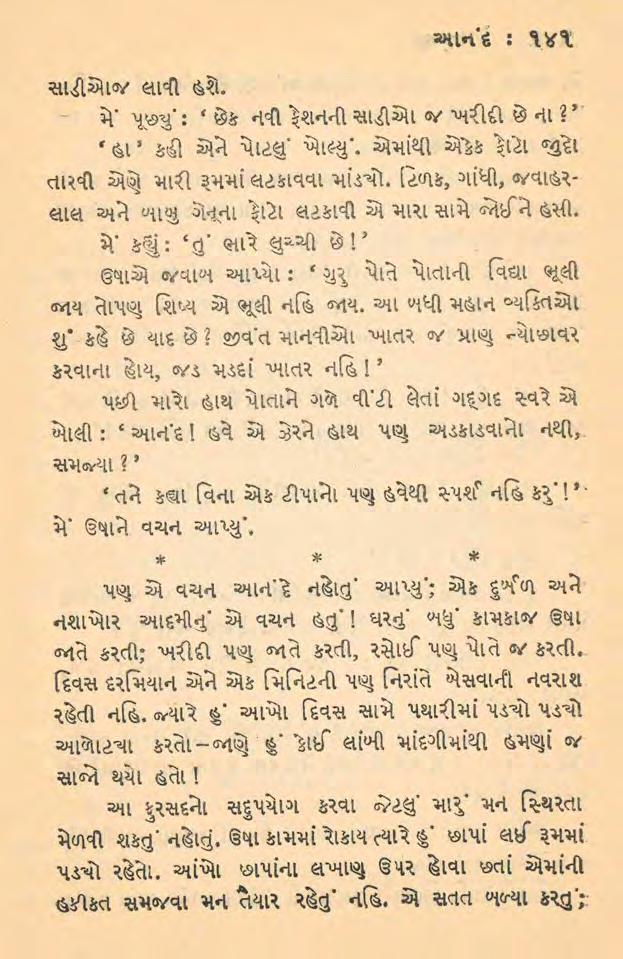 આનંદ : ૧૪૧
સાડીઓજ લાવી હશે.
મેં પૂછ્યું : ‘ છેક નવી ફેશનની સાડીઓ જ ખરીદી છે ના ?’
‘ હા ’ કહી એને પોટલું ખોલ્યું. એમાંથી એકેક ફોટો જુદો
તારવી એણે મારી રૂમમાં લટકાવવા માંડ્યો. ટિળક, ગાંધી, જવાહર-
લાલ અને બાબુ ગેનૂના ફોટા લટકાવી એ મારા સામે જોઈને હસી.
મેં કહ્યું : ‘તું ભારે લુચ્ચી છે !’
ઉષાએ જવાબ આપ્યો : ‘ ગુરુ પોતે પોતાની વિદ્યા ભૂલી
જાય તોપણ શિષ્ય એ ભૂલી નહિ જાય. આ બધી મહાન વ્યક્તિઓ
શું કહે છે યાદ છે ? જીવંત માનવીઓ ખાતર જ પ્રાણ ન્યોછાવર
કરવાના હોય, જડ મડદાં ખાતર નહિ ! ’
પછી મારો હાથ પોતાને ગળે વીંટી લેતાં ગદ્ગદ સ્વરે એ
બોલી : ‘ આનંદ ! હવે એ ઝેરને હાથ પણ અડકાડવાનો નથી,
સમજ્યા ? ’
‘ તને કહ્યા વિના એક ટીપાનો પણ હવેથી સ્પર્શ નહિ કરું !’
મેં ઉષાને વચન આપ્યું.
* * *
પણ એ વચન આનંદે નહોતું આપ્યું; એક દુર્બળ અને
નશાખોર આદમીનું એ વચન હતું ! ઘરનું બધું કામકાજ ઉષા
જાતે કરતી; ખરીદી પણ જાતે કરતી, રસોઈ પણ પોતે જ કરતી.
દિવસ દરમિયાન એને એક મિનિટની પણ નિરાંતે બેસવાની નવરાશ
રહેતી નહિ. જ્યારે હું આખો દિવસ સામે પથારીમાં પડ્યો પડ્યો
આળોટ્યા કરતો–જાણે હું કોઈ લાંબી માંદગીમાંથી હમણાં જ
સાજો થયો હતો !
આ ફુરસદનો સદુપયોગ કરવા જેટલું મારું મન સ્થિરતા
મેળવી શકતું નહોતું. ઉષા કામમાં રોકાય ત્યારે હું છાપાં લઈ રૂમમાં
પડ્યો રહેતો. આંખો છાપાંના લખાણ ઉપર હોવા છતાં એમાંની
હકીકત સમજવા મન તૈયાર રહેતું નહિ. એ સતત બળ્યા કરતું;